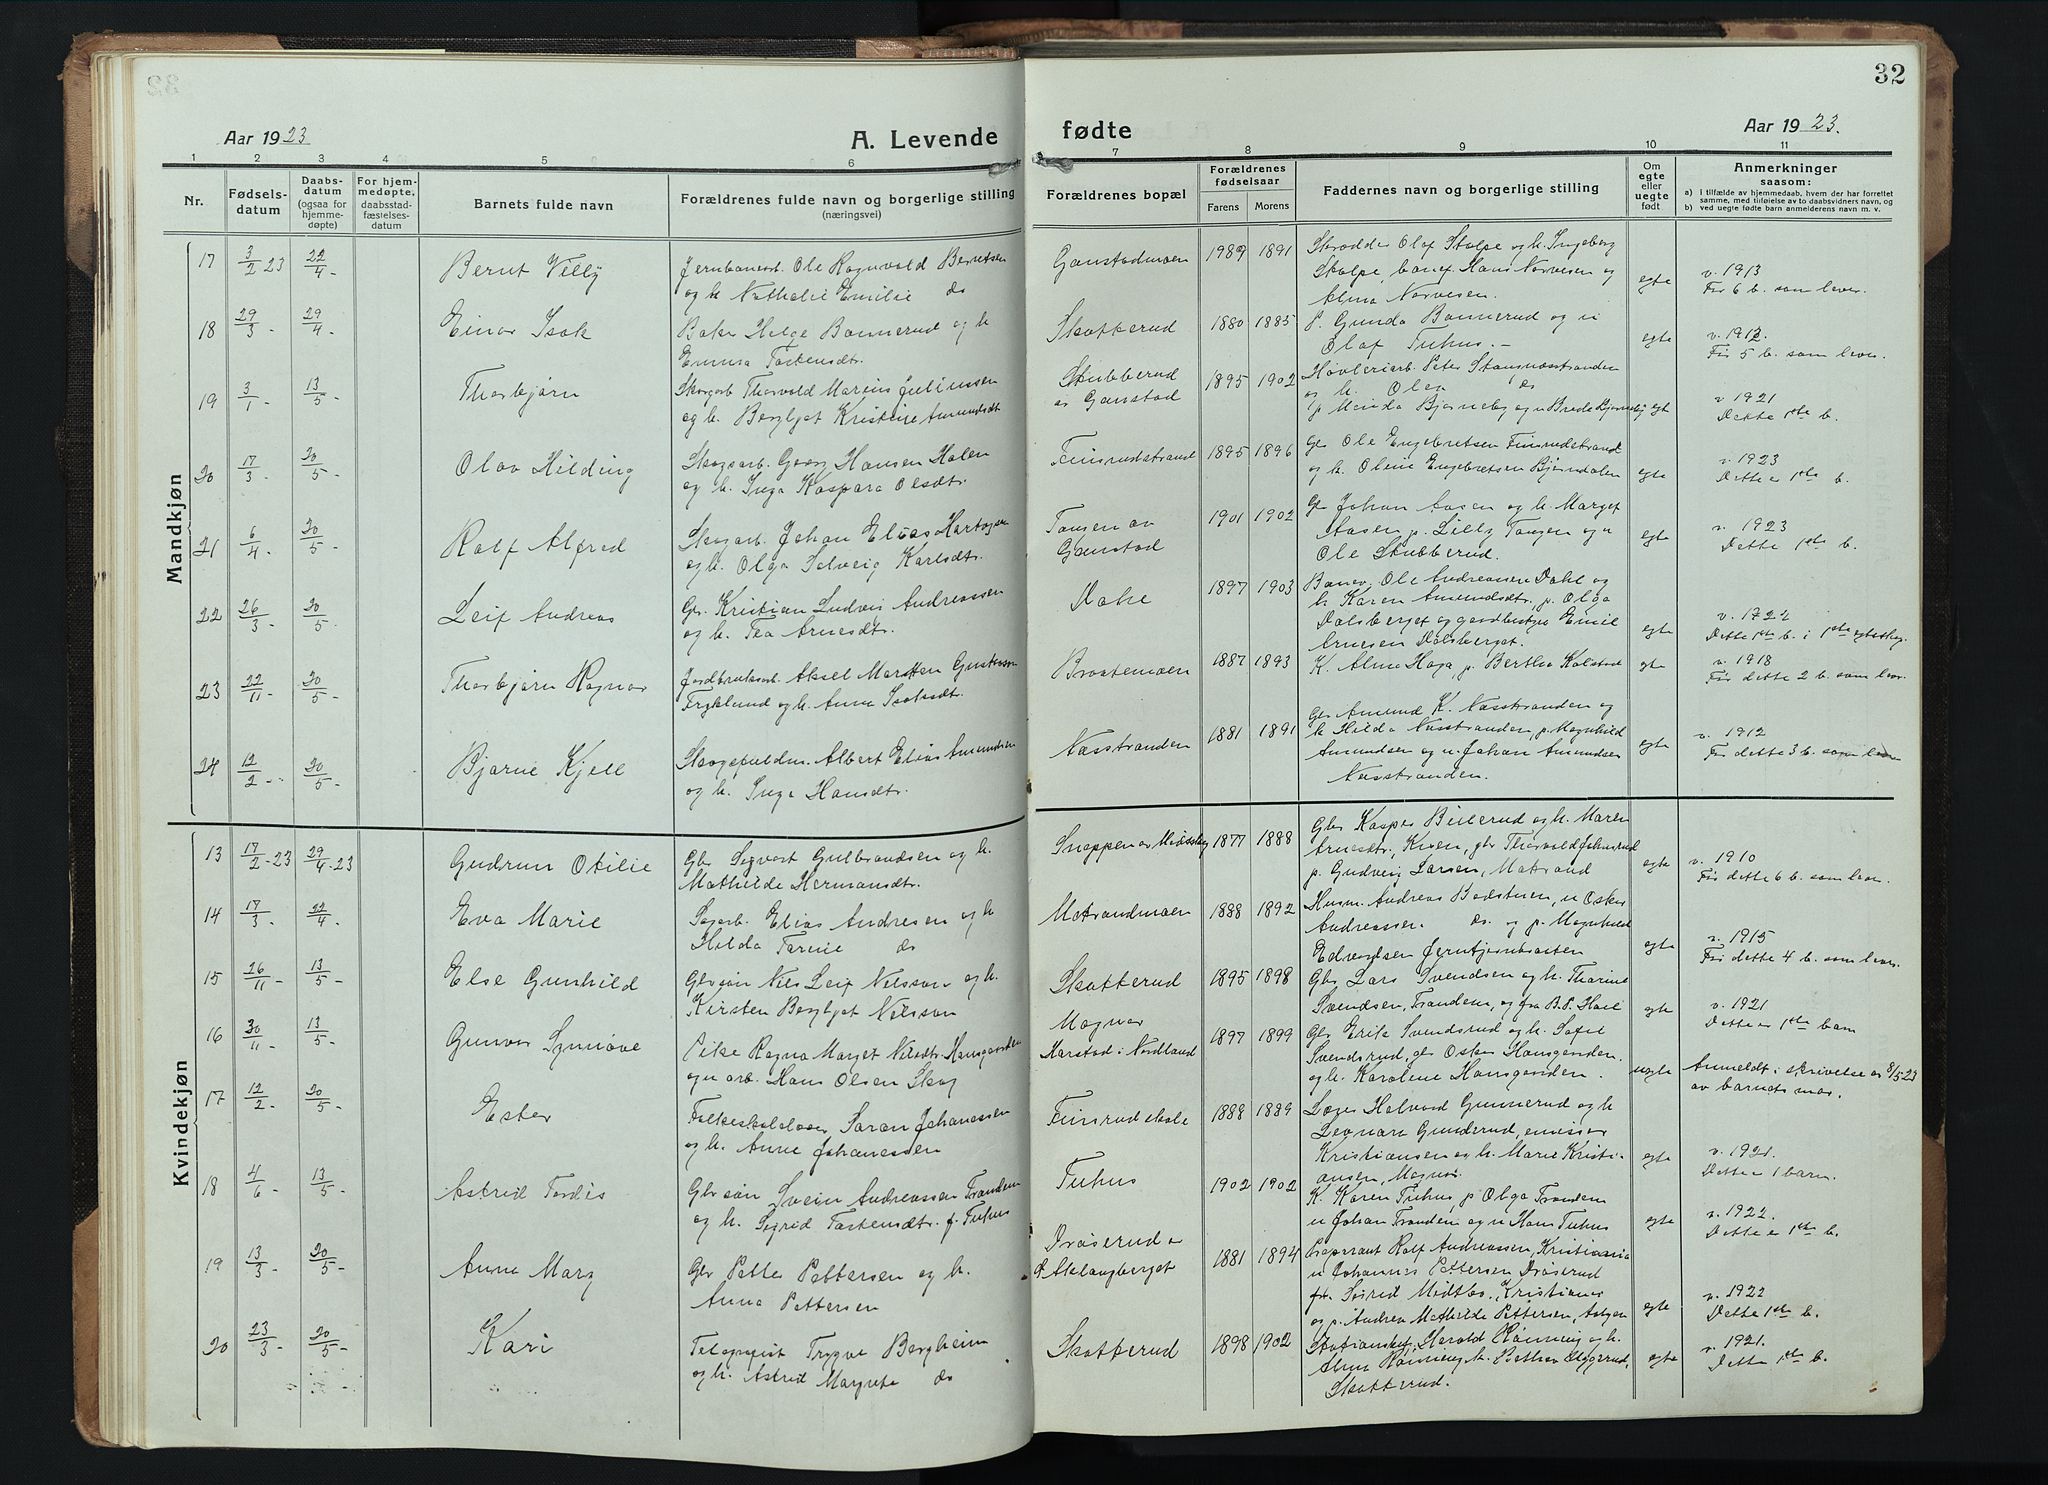 32
Aar 1923
A. Levende fødte
Aar 1923.
1 2 3 4 5 6 7 8 9 10 11
Nr.
Fødsels-
datum
Daabs-
datum
(ogsaa for
hjemme-
døpte)
For hjem-
medøpte,
daabsstad-
fæstelses-
datum
Barnets fulde navn
Forældrenes fulde navn og borgerlige stilling
(næringsvei)
Forældrenes bopæl
Forældrenes
fødselsaar
Farens Morens
Faddernes navn og borgerlige stilling
Om
egte
eller
uegte
født
Anmerkninger
saasom:
a) I tilfælde av hjemmedaab, hvem der har forrettet
samme, med tilføielse av to daabsvidners navn, og
b) ved uegte fødte barn anmelderens navn m. v.
Mandkjøn
17 3/2 23 22/4 - Bernt Villy
Jernbanearb. Ole Ragnvald Berntsen
og h. Nathalie Emilie do
Ganstadmoen 1989 1891
Skrædder Olaf Stolpe og h. Ingeborg
Stolpe, banef. Hans Norvesen og
Alma Norvesen.
egte
v. 1913
Før 6 b. som lever.
18 29/3 - 29/4 - Einar Isak
Baker Helge Bonnerud og h
Emma Torstensdtr.
Skotterud 1880 1885
P. Gunda Bonnerud og u
Olaf Tuhus. -
egte
v. 1912.
Før 5 b. som lever.
19 3/1 - 13/5 - Thorbjørn
Skogarb Thorvald Marius Juliussen
og h. Bergljot Kristine Amundsdt
Skubberud
av Ganstad 1895 1902
Høvleriarb. Peter Stangnæsstranden
og h. Olea do
p Menda Bjørneby og u Brede Bjørneby egte
v 1921
Dette 1ste b.
20 17/3 - 20/5 - Olav Hilding
Skogsarb. Georg Hansen Holen
og h. Inga Kaspara Olsdtr.
Finsrudstrand 1895 1896
Gbr Ole Engebretsen Finsrudstrand
og h. Oline Engebretsen Bjørndalen
egte
v. 1923
Dette e 1ste b.
21 6/4 - 20/5 - Rolf Alfred
Skogarb. Johan Elias
og h. Olga Solveig Karlsdtr.
Tangen av
Ganstad 1901 1902
Gbr Johan Aasen og h. Marget
Aasen, p. Lilly Tangen og u
Ole Skubberud.
egte
v. 1923
Dette 1ste b.
22 26/3 - 20/5 - Leif Andreas
Gbr. Kristian Ludvig Andreassen
og h. Tea Arnesdtr.
1897 1903
Banev. Ole Andreassen Dahl og
h Karen Amundsdtr, p. Olga
Dalsberget og gaardbestyrer Emil
Arnesen Dalsberget.
egte
Dette 1ste b. i 1ste egteskap.
23 22/11 - 20/5 - Thorbjørn Ragnar
Jordbruksarb. Aksel Gustavsen
Fryklund og h. Anna Isaksdtr.
Brostemoen 1887 1893
K. Alma Haga, p. Bertha Kolstad
egte
v. 1918
Før dette 2 b. som lever.
24 12/2 - 20/5 - Bjarne Kjell
Skogsfuldm. Albert Elias Amundsen
og h. Inga Hansdtr.
Næsstranden 1881 1891
Gbr Amund K. Næsstranden og
h Hilda Næsstranden, p. Magnhild
Amundsen og u. Johan Amundsen
Næsstranden.
egte
v. 1912
Før dette 3 b. som lever
Kvindekjøn
13 17/2 - 23 29/4 - 23 Gudrun Otilie
Gbr Sigvart Gulbrandsen og h.
Mathilde Hermansdtr.
1877 1888
Gbr Kasper Beilerud og h. Maren
Arnesdtr,
p. Gudveig Larsen, Matrand
egte
v. 1910
Før dette 6 b. som lever.
14 17/3 - 22/4 - Eva Marie
Sagarb. Elias Andresen og h
Hilda do
Matrandmoen 1888 1892
Husm. Andreas Badstuen, u Oskar
Andreassen do og p. Magnhild
Edvardsen
egte
v. 1915
Før dette 4 b. som lever.
15 26/11 - 13/5 - Else Gunhild
Gbr søn Nils Leif Nilsson og h.
Kirsten Bergljot Nilsson
Skotterud 1895 1898
Gbr Lars Svendsen og h. Thorine
Svendsen, Tranden, og fra
egte
v. 1921
Dette e 1ste barn
16 30/11 - 13/5 - Gunvor Synnøve
Pike Ragna Marget Nilsdtr. Hansgaarden
og u arb. Hans Olsen Skog
Magnor
Karstad i Nordland 1897 1899
Gbr Erik Svendsrud og h. Sofie
Svendsrud, gbr Oskar Hansgaarden
og h. Karoline Hansgaarden.
uegte
Anmeldt i skrivelse av 8/5 23
av barnets mor.
17 12/2 - 20/5 - Ester
Folkeskolelærer Søren Johanessen
og h. Anna Johanessen
Finsrud skole 1888 1889
Læger Halvord Gunnerud og h
Leonara Gunderud, emissær
Kristiansen og h. Marie Kristi-
ansen, Magnor
egte
v. 1921.
Dette e 1 barn.
18 4/6 - 13/5 - Astrid Tordis
Gbr søn Svein Andreassen Tranden
og h. Sigrid Torstensdtr. f. Tuhus
Tuhus 1902 1902
K. Karen Tuhus, p Olga Tranden
u Johan Tranden og u Hans Tuhus
egte
v. 1922.
Dette e 1ste b.
19 13/3 - 20/5 - Anna Mary
Gbr Petter Pettersen og h.
Anna Pettersen
1881 1894
Rolf Andreassen, Kristiania
u Johannes Pettersen Drøserud
frk. Sigrid Midtbø, Kristiania
og p. Andrea Mathilde Pettersen,
egte
v. 1922
Dette 1ste b.
20 23/3 - 20/5 - Kari
Telegrafist Trygve Bergheim
og h. Astrid Margrete do
Skotterud 1898 1902
Harald Rønning og h.
Alma Rønning,
Skotterud.
egte
v. 1921.
Dette 1ste b.